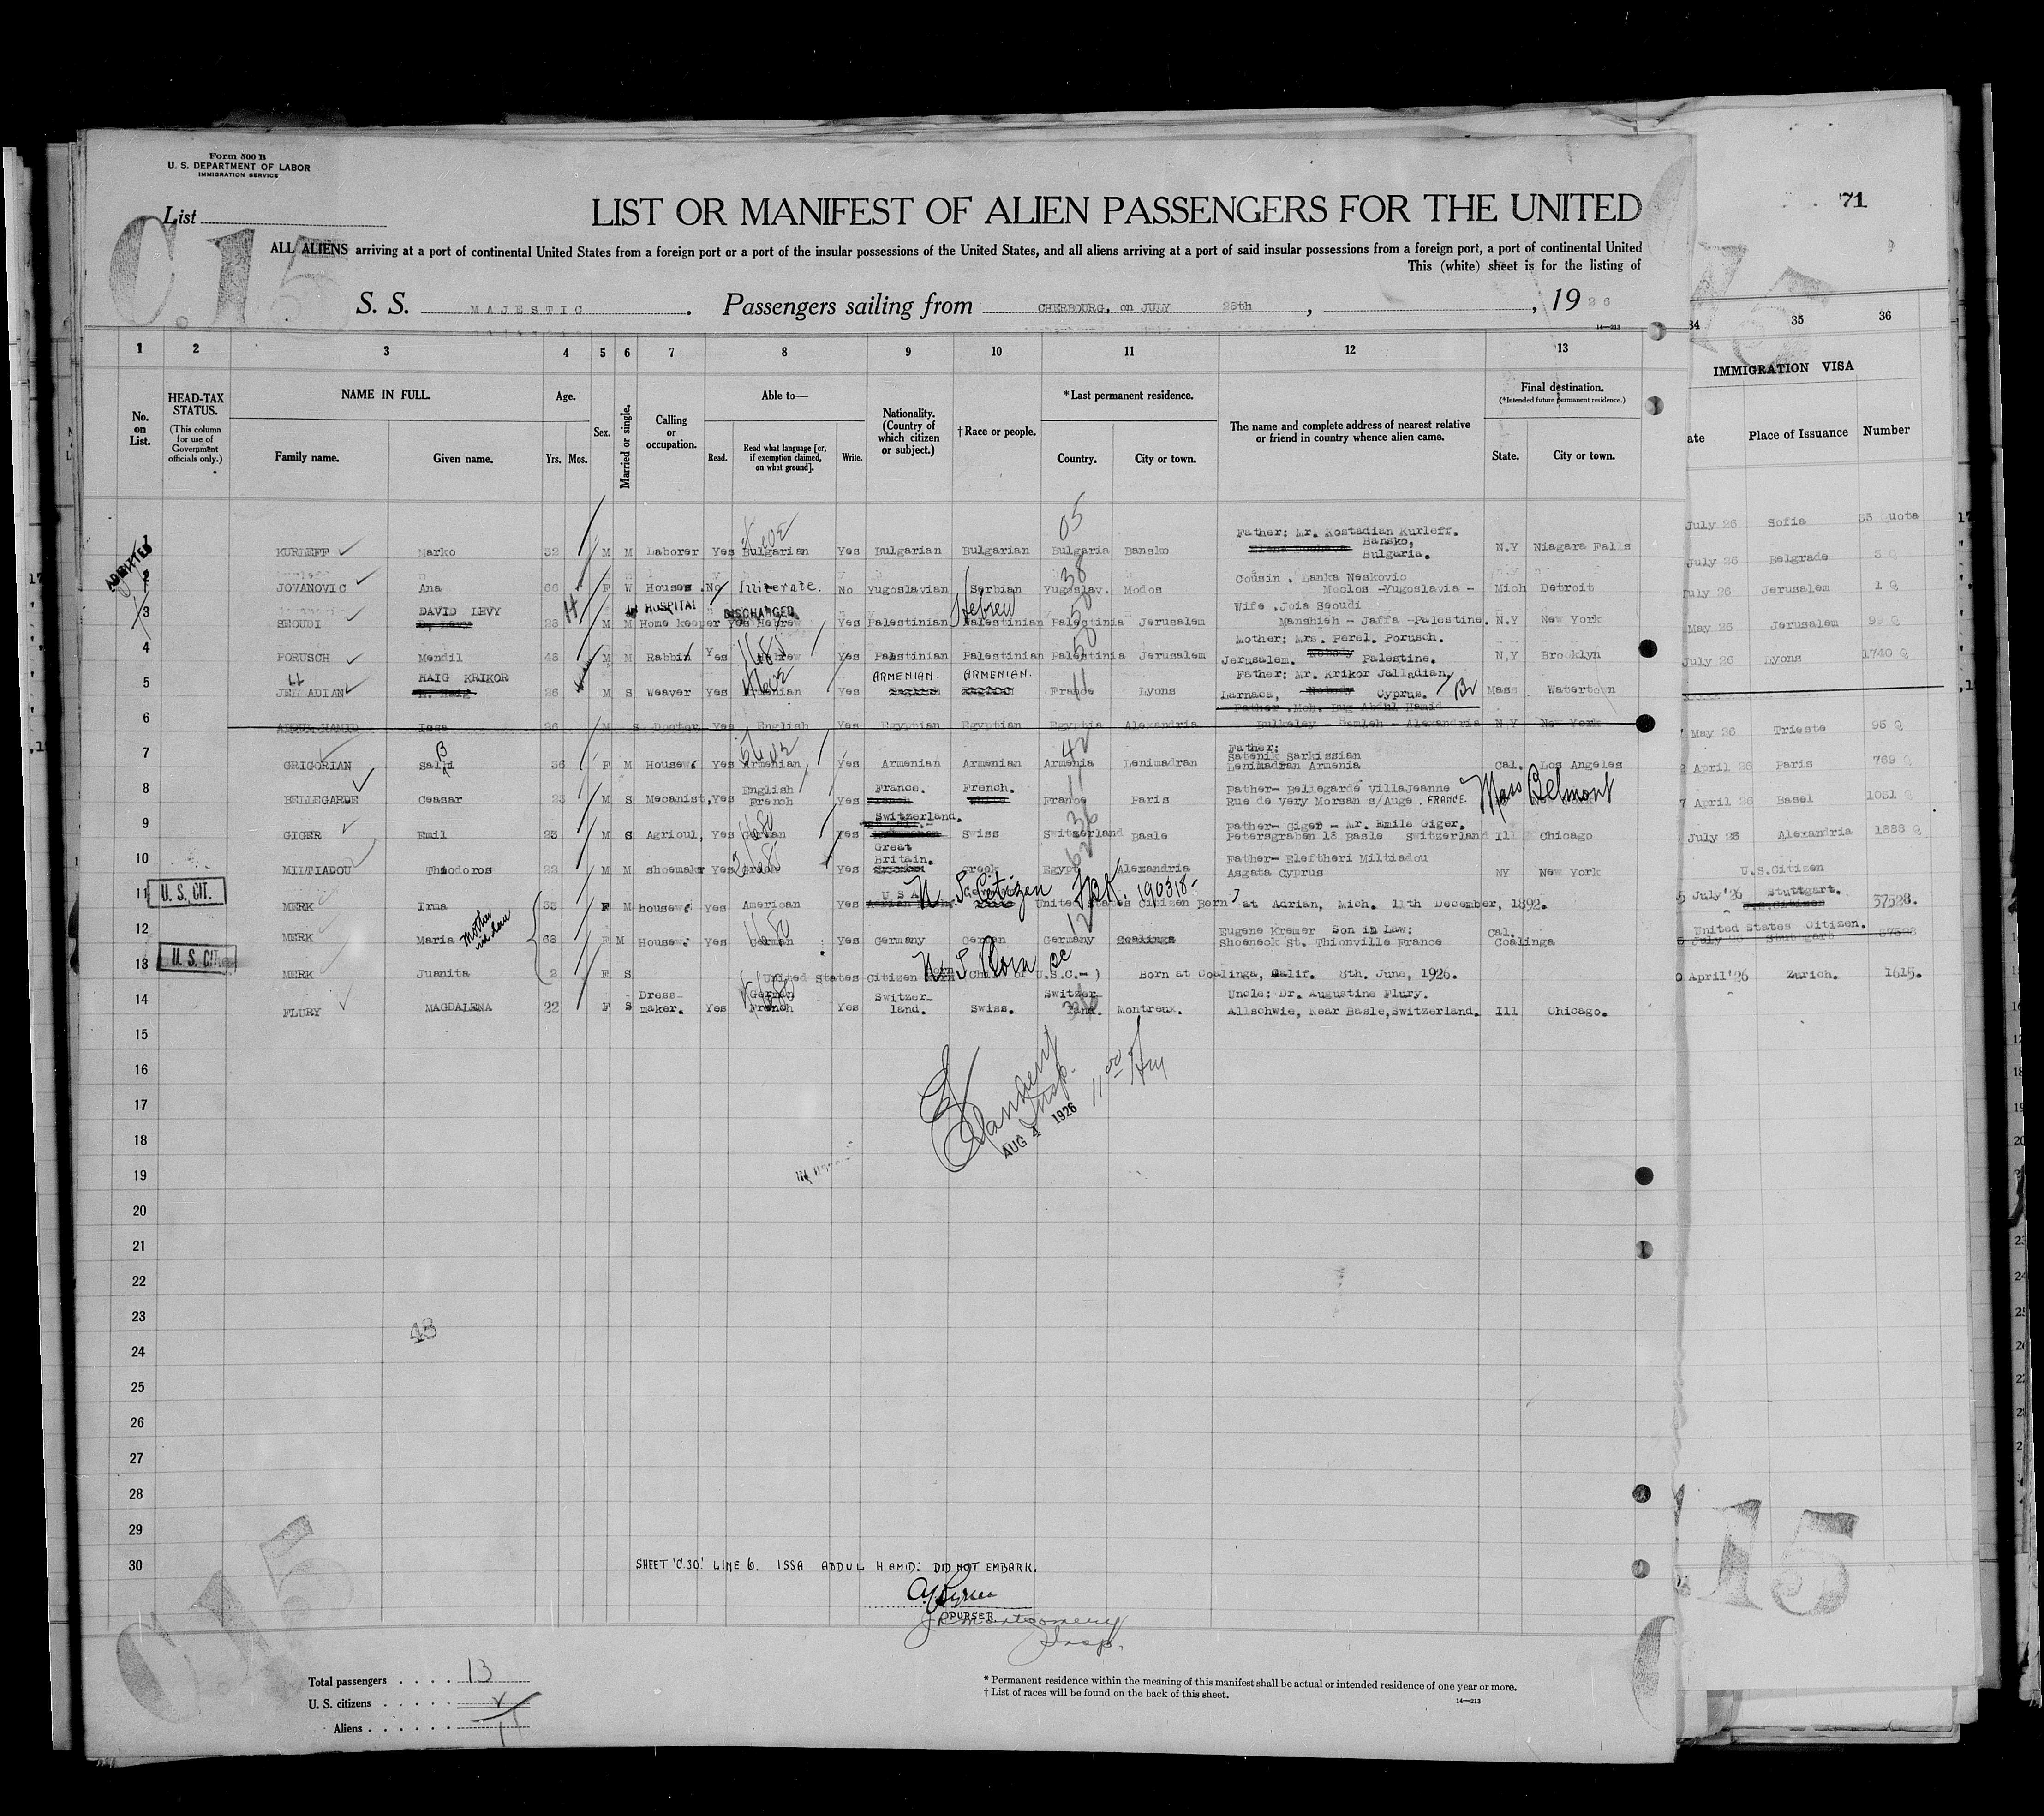 Form 500 B
U. S. DEPARTMENT OF LABOR
IMMIGRATION SERVICE
List
C.15
LIST OR MANIFEST OF ALIEN PASSENGERS FOR THE UNITED
71
ALL ALIENS arriving at a port of continental United States from a foreign port or a port of the insular possessions of the United States, and all aliens arriving at a port of said insular possessions from a foreign port, a port of continental United
This (white) sheet is for the listing of
S. S. MAJESTIC. Passengers sailing from CHERBOURG, on JULY 28th, 1926
14—213
1 2 3 4 5 6 7 8 9 10 11 12 13 34 35 36
No. on List.
HEAD-TAX STATUS.
(This column for use of Government officials only.)
NAME IN FULL.
Family name. Given name.
Age.
Yrs. Mos.
Sex.
Married or single.
Calling or occupation.
Able to—
Read. Read what language [or, if exemption claimed, on what ground]. Write.
Nationality. (Country of which citizen or subject.)
†Race or people.
*Last permanent residence.
Country. City or town.
The name and complete address of nearest relative or friend in country whence alien came.
Final destination.
(*Intended future permanent residence.)
State. City or town.
IMMIGRATION VISA
ate Place of Issuance Number
ADMITTED
05
Father: Mr. Kostadian Kurleff.
1 KURLEFF Marko 32 M M Laborer Yes Bulgarian Yes Bulgarian Bulgarian Bulgaria Bansko Bansko, Bulgaria. N.Y Niagara Falls
July 26 Sofia 35 Quota
38
Cousin. Lanka Neskovic
2 JOVANOVIC Ana 66 F W Housew. No Illiterate. No Yugoslavian Serbian Yugoslav. Modos Moolos -Yugoslavia - Mich Detroit
July 26 Belgrade 3 Q
IN HOSPITAL DISCHARGED Hebrew 50
DAVID LEVY
Wife .Joia Seoudi
3 SEOUDI D, Levy 28 M M Home keeper Yes Hebrew Yes Palestinian Palestinian Palestinia Jerusalem Manshieh - Jaffa -Palestine. N.Y New York
July 26 Jerusalem 1 Q
50
Mother: Mrs. Perel. Porusch.
4 PORUSCH Mendil 48 M M Rabbin Yes Hebrew Yes Palestinian Palestinian Palestinia Jerusalem Jerusalem. Nobody Palestine. N,Y Brooklyn
May 26 Jerusalem 99 Q
HAIG KRIKOR
ARMENIAN. ARMENIAN. 11
Father; Mr. Krikor Jalladian,
5 JELLADIAN K. Haig 26 M S Weaver Yes Armenian Yes France Lyons Larnaca, Nobody Cyprus. Mass Watertown
July 26 Lyons 1740 Q
Father .Moh. Bug Abdul Hamid
6 ABDUL HAMID Issa 26 M S Doctor Yes English Yes Egyptian Egyptian Egyptia Alexandria Bulkeley - Ramleh - Alexandria N,Y New York
42
Father:
Satenik Sarkissian
7 GRIGORIAN Salbi 36 F M Housew. Yes Armenian Yes Armenian Armenian Armenia Leninadran Leninadran Armenia Cal. Los Angeles
May 26 Trieste 95 Q
English France. French. 11
Father- Bellegarde VillaJeanne Mass Belmont
8 BELLEGARDE Ceasar 23 M S Mecanist, Yes French Yes French White France Paris Rue de very Morsan s/Auge. FRANCE.
April 26 Paris 769 Q
Switzerland. 36
Father- Giger - Mr. Emile Giger.
9 GIGER Emil 23 M S Agricul, Yes German Yes Swiss Switzerland Basle Petersgraben 18 Basle Switzerland Ill Chicago
April 26 Basel 1031 Q
Great Britain.
Father- Eleftheri Miltiadou
10 MILTIADOU Theodoros 22 M M shoemaker Yes Greek Yes Greek Egypt Alexandria Asgata Cyprus NY New York
July 26 Alexandria 1888 Q
U. S. CIT.
U S A U. S. Citizen 190318-
11 MERK Irma 33 F M housew. Yes American Yes United States Citizen Born at Adrian, Mich. 11th December, 1892.
U.S.Citizen
mother in law
12
Eugene Kremer Son in Law:
12 MERK Maria 68 F M Housew. Yes German Yes Germany German Germany Coalinga Shoeneck St. Thionville France Cal. Coalinga
5 July '26 Stuttgart. 37528.
U. S. CIT.
U. S. Born
13 MERK Juanita 2 F S United States Citizen U.S.C.-) Born at Coalinga, Calif. 8th. June, 1926.
United States Citizen.
July 26 Stuttgart 37528
Dress- German Switzer- Switzer Uncle: Dr. Augustine Flury.
14 FLURY MAGDALENA 22 F S maker. Yes French Yes land. Swiss. land. Montreux. Allschwie, Near Basle,Switzerland. Ill Chicago.
April'26 Zurich. 1615.
15
16
17
Insp.
AUG 4 1926
11 00 Am
18
19
20
21
22
23
48
24
25
26
27
28
29
30
SHEET 'C.30.' LINE 6. ISSA ABDUL HAMID: DID NOT EMBARK.
PURSER
Montgomery
Insp.
C.15
15
Total passengers . . . . 13
U. S. citizens . . . . . 2
Aliens . . . . . . 11
* Permanent residence within the meaning of this manifest shall be actual or intended residence of one year or more.
† List of races will be found on the back of this sheet.
14—213